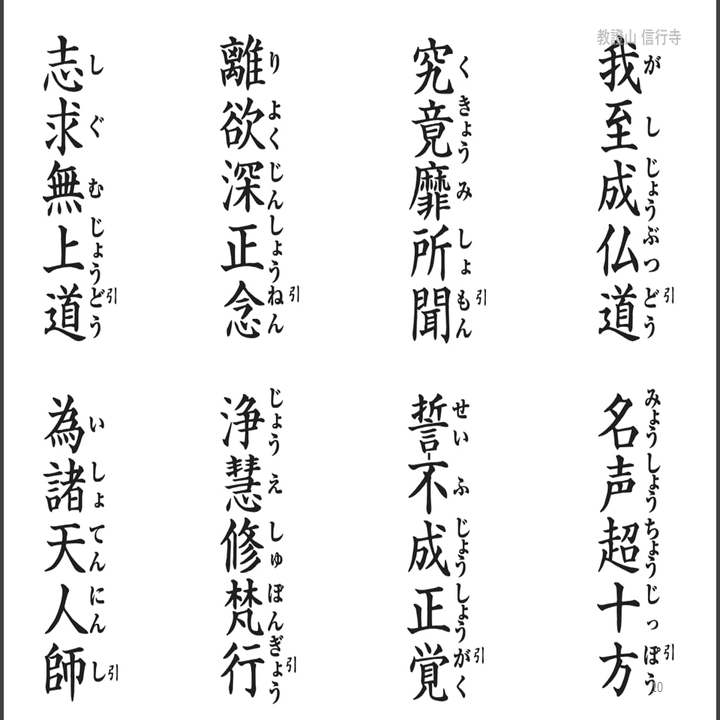 教證山 信行寺
我至成仏道
がしじょうぶつどう
引
名声超十方
みょうしょうちょうじっぽう
引
究竟靡所聞
くきょうみしょもん
引
誓不成正覚
せいふじょうしょうがく
引
離欲深正念
りよくじんしょうねん
引
浄慧修梵行
じょうえしゅぼんぎょう
引
志求無上道
しぐむじょうどう
引
為諸天人師
いしょてんにんし
引
10